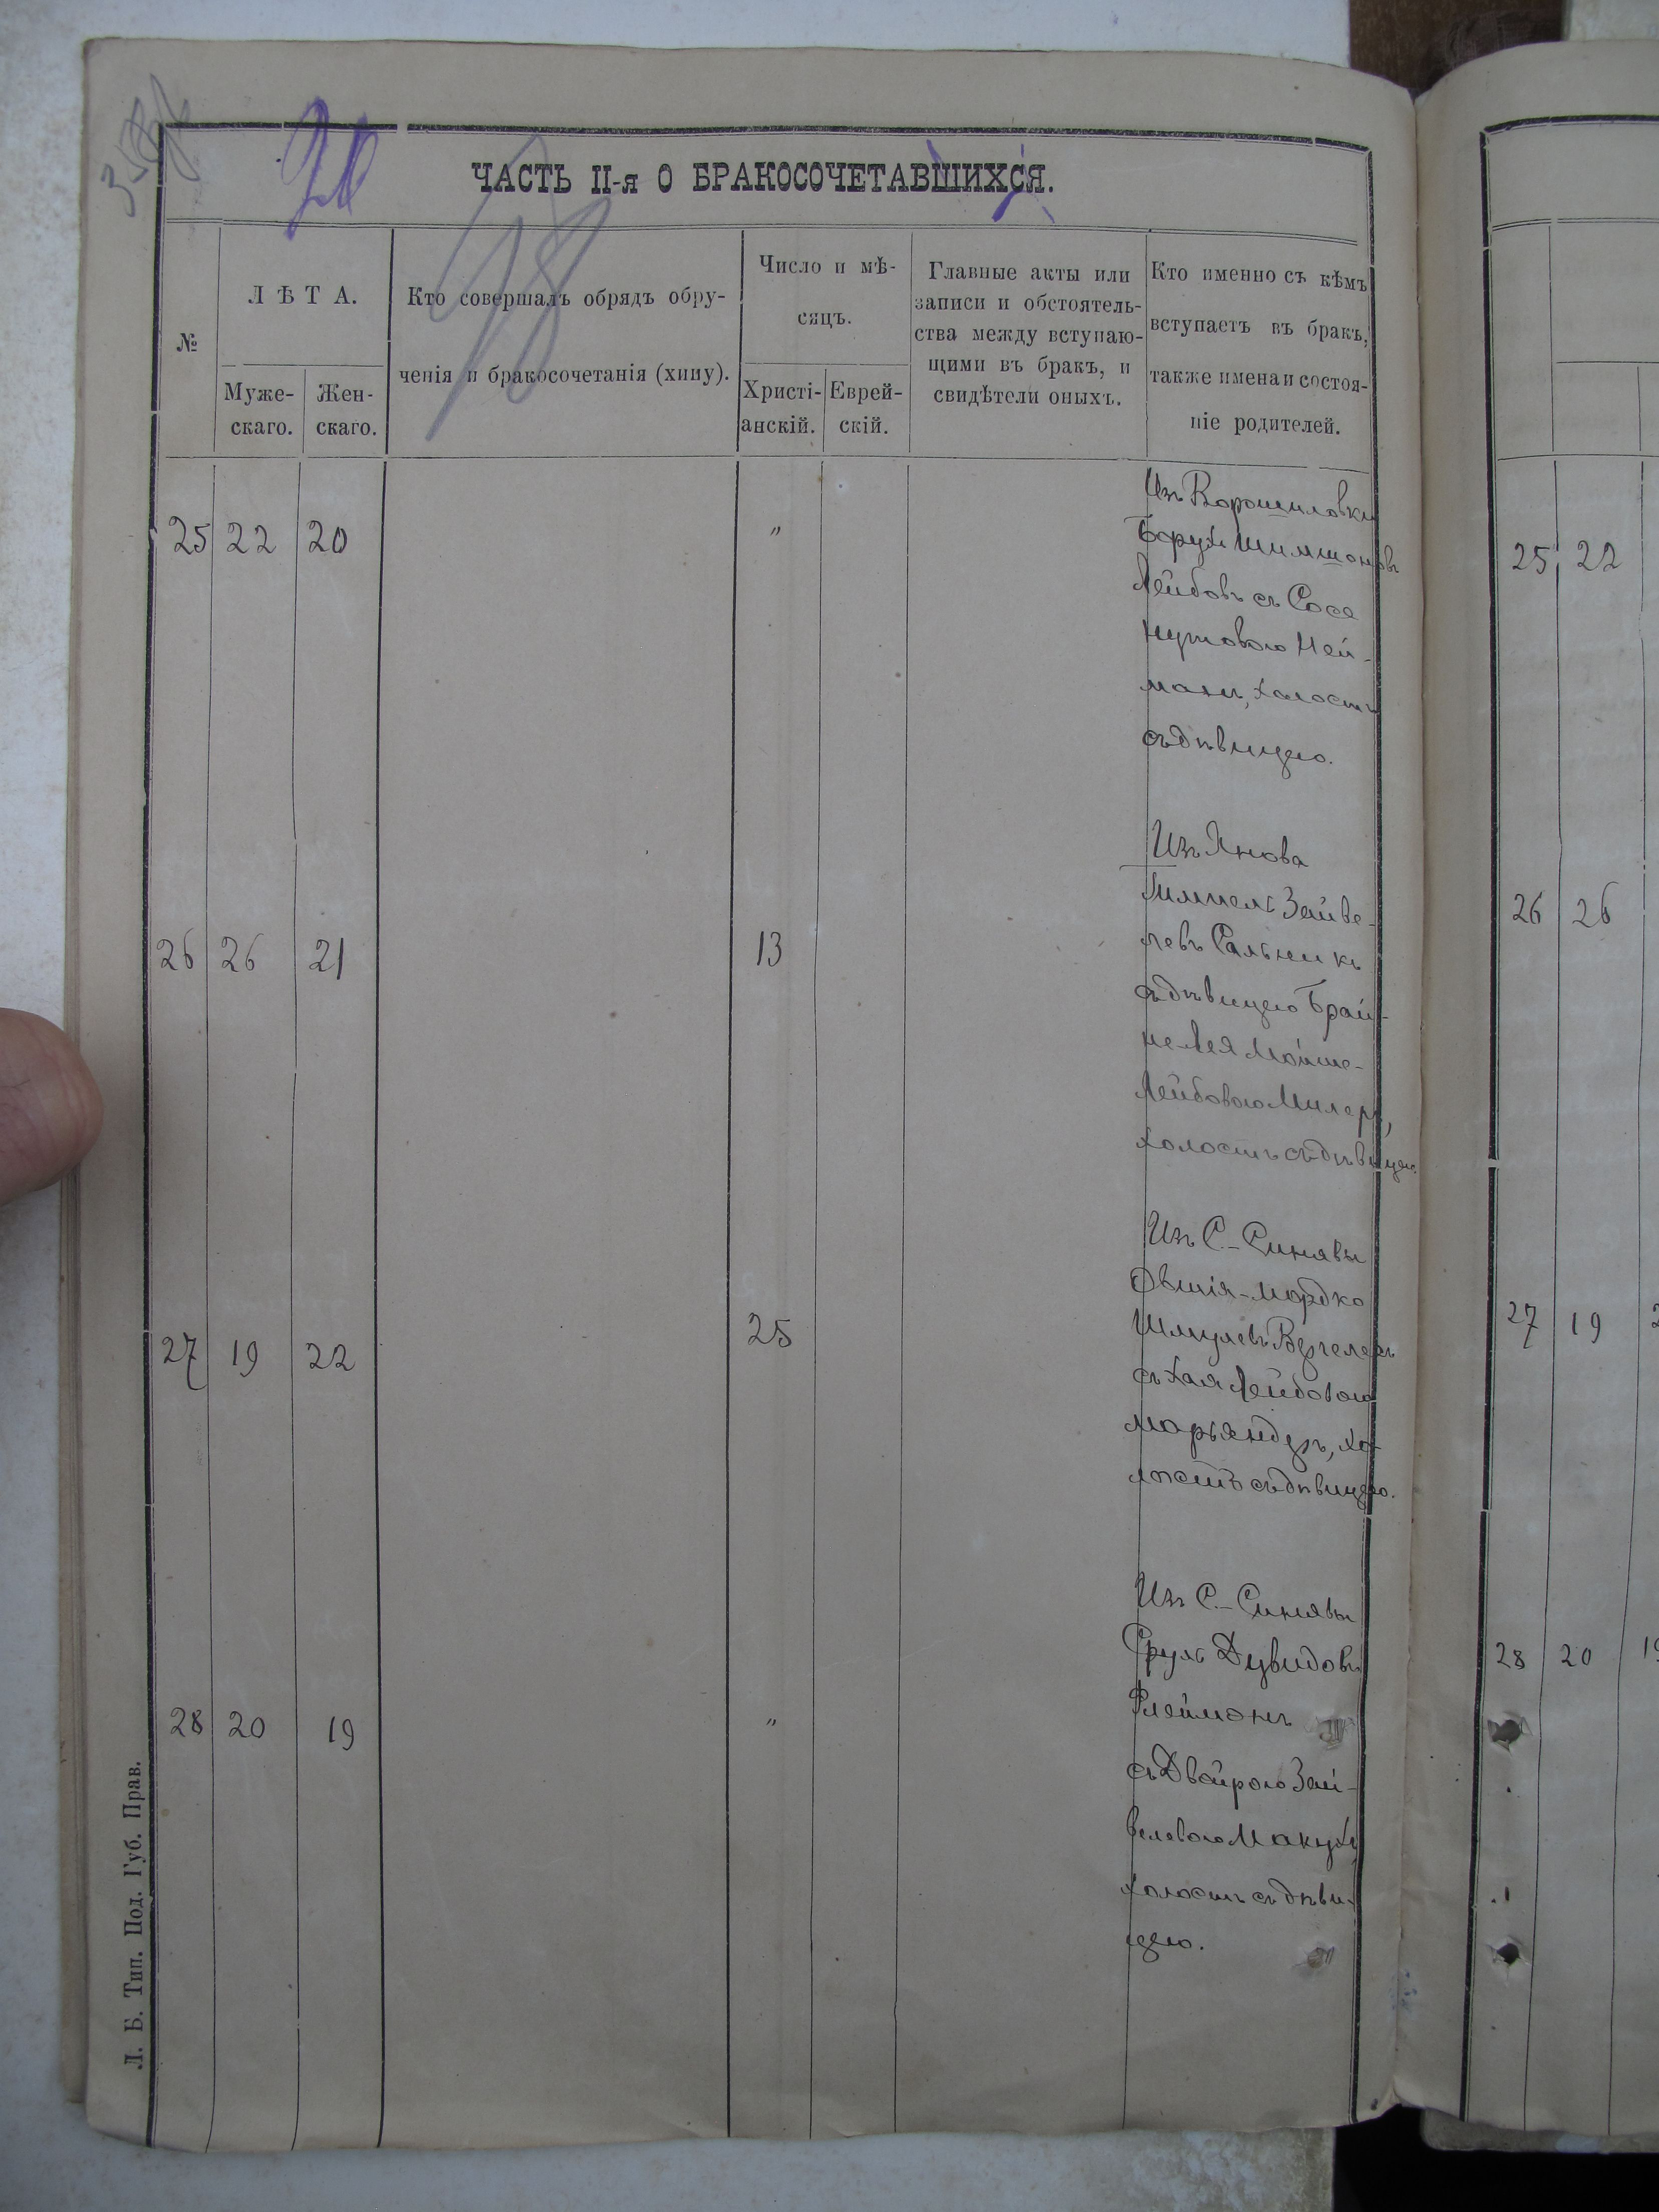 ЧАСТЬ II-я О БРАКОСОЧЕТАВШИХСЯ.
№
ЛѢТА.
Муже-
скаго.
Жен-
скаго.
Кто совершалъ обрядъ обру-
ченія и бракосочетанія (хипу).
Число и мѣ-
сяцъ.
Христі-
анскій.
Еврей-
скій.
Главные акты или
записи и обстоятель-
ства между вступаю-
щими въ бракъ, и
свидѣтели оныхъ.
Кто именно съ кѣмъ
вступаетъ въ бракъ,
также имена и состоя-
ніе родителей.
25 22 20 "
Изъ Ворошиловки
Борухъ Шимшоновъ
Лейбовъ съ Сосе
Нутовою Ней-
манъ, холостъ
съ дѣвицею.
26 26 21 13
Изъ Янова
Гимпель Зайве-
левъ Сальникъ
съ дѣвицею Брай-
не-Лея Мойше-
Лейбовою Милеръ,
холостъ съ дѣвицею.
27 19 22 25
Изъ С-Синявы
Овшія-Мордко
Шмулевъ Вергелесъ
съ Хая Лейбовою
Марьяндеръ, хо-
лостъ съ дѣвицею.
28 20 19 "
Изъ С-Синявы
Сруль Дувидовъ
Флейманъ
съ Двойрою Зай-
велевою Макухъ
холостъ съ дѣви-
цею.
Л. Б. Тип. Под. Губ. Прав.
25 22
26 26
27 19
28 20